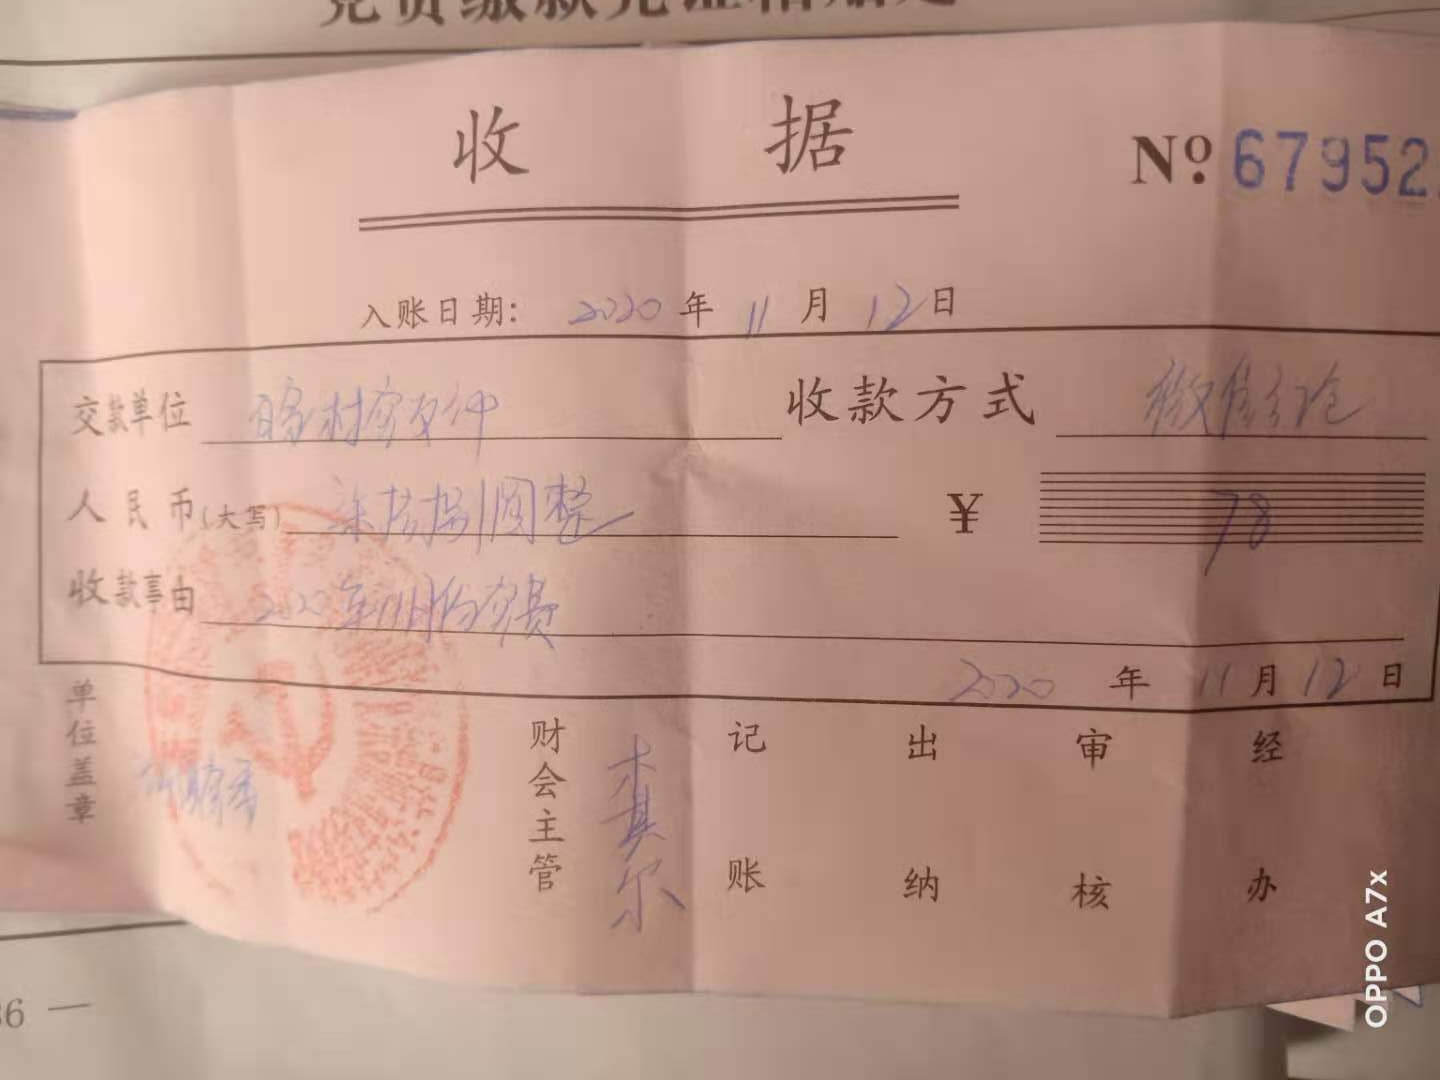 党费缴款凭证粘贴处
收 据
Nº 67952
入账日期: 2020 年 11 月 12 日
交款单位 收款方式 微信红包
人民币(大写) 柒拾捌圆整 ¥ 78
收款事由 2020年11月份党费
2020 年 11 月 12 日
单位盖章 财会主管 记账 出纳 审核 经办
36 —
OPPO A7x